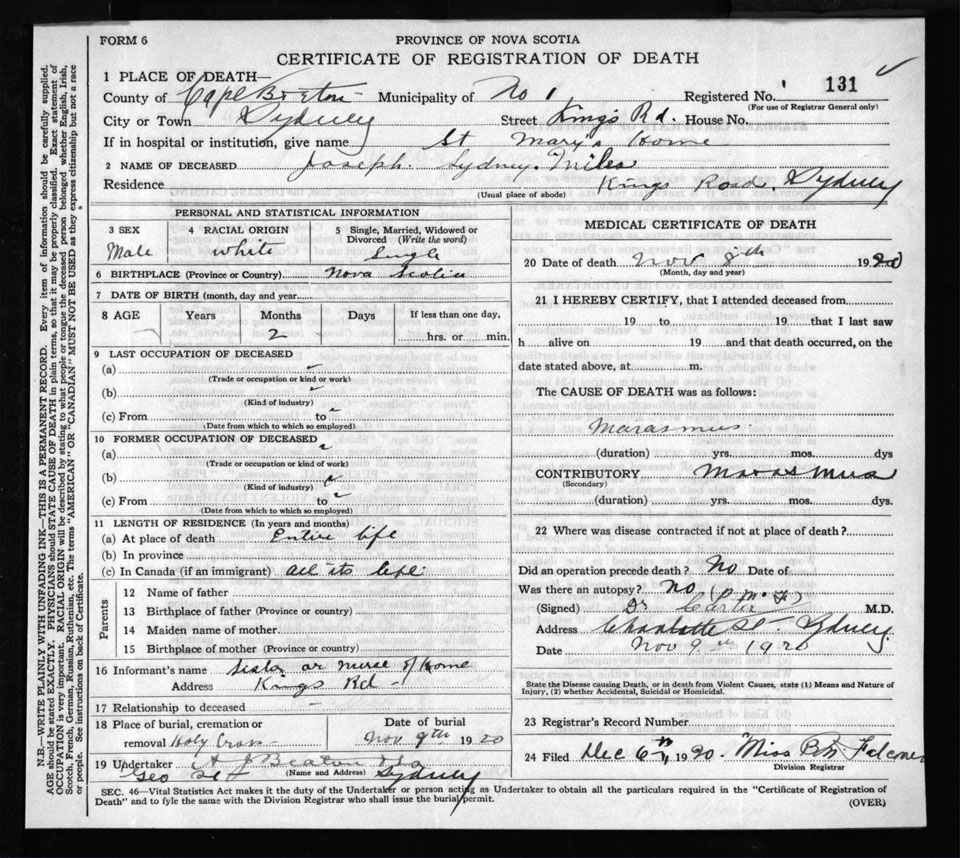 FORM 6
PROVINCE OF NOVA SCOTIA
CERTIFICATE OF REGISTRATION OF DEATH
1 PLACE OF DEATH—
County of Cape Breton Municipality of No 1 Registered No. 131
(For use of Registrar General only)
City or Town Sydney Street King's Rd. House No.
If in hospital or institution, give name St Mary's Home
2 NAME OF DECEASED Joseph Sydney Miles
Residence Kings Road, Sydney
(Usual place of abode)
PERSONAL AND STATISTICAL INFORMATION
3 SEX 4 RACIAL ORIGIN 5 Single, Married, Widowed or Divorced (Write the word)
Male White Single
6 BIRTHPLACE (Province or Country) Nova Scotia
7 DATE OF BIRTH (month, day and year)
8 AGE Years Months Days If less than one day,
2 hrs. or min.
9 LAST OCCUPATION OF DECEASED
(a)
(Trade or occupation or kind or work)
(b)
(Kind of industry)
(c) From to
(Date from which to which so employed)
10 FORMER OCCUPATION OF DECEASED
(a)
(Trade or occupation or kind of work)
(b)
(Kind of industry)
(c) From to
(Date from which to which so employed)
11 LENGTH OF RESIDENCE (In years and months)
(a) At place of death Entire life
(b) In province
(c) In Canada (if an immigrant) all its life
Parents
12 Name of father
13 Birthplace of father (Province or country)
14 Maiden name of mother
15 Birthplace of mother (Province or country)
16 Informant's name Sister or nurse of Home
Address Kings Rd
17 Relationship to deceased
18 Place of burial, cremation or removal Holy Cross
Date of burial Nov 9th 1920
19 Undertaker A J Beaton
Geo St Sydney
(Name and Address)
MEDICAL CERTIFICATE OF DEATH
20 Date of death Nov 8th 1920
(Month, day and year)
21 I HEREBY CERTIFY, that I attended deceased from
19 to 19 that I last saw
h alive on 19 and that death occurred, on the
date stated above, at m.
The CAUSE OF DEATH was as follows:
Marasmus
(duration) yrs. mos. dys
CONTRIBUTORY Marasmus
(Secondary)
(duration) yrs. mos. dys.
22 Where was disease contracted if not at place of death?
Did an operation precede death? No Date of
Was there an autopsy? No
(Signed) Dr Carter M.D.
Address Charlotte St Sydney
Date Nov 9th 1920
State the Disease causing Death, or in death from Violent Causes, state (1) Means and Nature of
Injury, (2) whether Accidental, Suicidal or Homicidal.
23 Registrar's Record Number
24 Filed Dec 6th 1920. Miss B.M. Falconer
Division Registrar
SEC. 46—Vital Statistics Act makes it the duty of the Undertaker or person acting as Undertaker to obtain all the particulars required in the "Certificate of Registration of
Death" and to fyle the same with the Division Registrar who shall issue the burial permit.
(OVER)
N.B.—WRITE PLAINLY WITH UNFADING INK—THIS IS A PERMANENT RECORD. Every item of information should be carefully supplied.
AGE should be stated EXACTLY. PHYSICIANS should STATE CAUSE OF DEATH in plain terms, so that it may be properly classified. Exact statement of
OCCUPATION is very important. RACIAL ORIGIN will be described by stating to what people or tongue the deceased person belonged whether English, Irish,
Scotch, French, German, Russian, Ruthenian, etc. The terms "AMERICAN" OR "CANADIAN" MUST NOT BE USED as they express citizenship but not a race
or people. See instructions on back of Certificate.